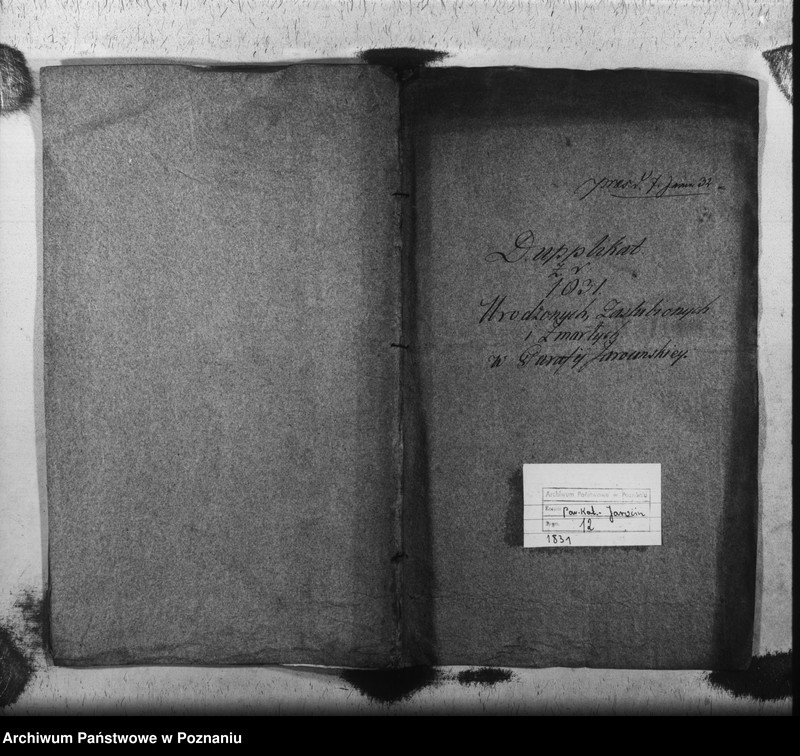 pres. d. 7. Janu 32.
Dupplikat
z r.
1831.
Urodzonych, Zaslubionych
i Zmarłych
w Parafij Jarocinskiey.
Archiwum Państwowe w Poznaniu
Par. Kat. - Jarocin
12
1831
Archiwum Państwowe w Poznaniu